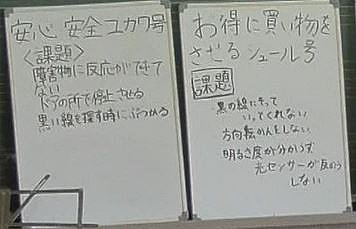 安心 安全 ユカワ号
〈課題〉
障害物に反応ができて
ない
ドアの所で停止させる
黒い線を探す時にぶつかる
お得に買い物を
させるシュール号
課題
黒の線にそって
いってくれない
方向転かんをしない
明るさ度が分からず
光センサーが反のう
しない